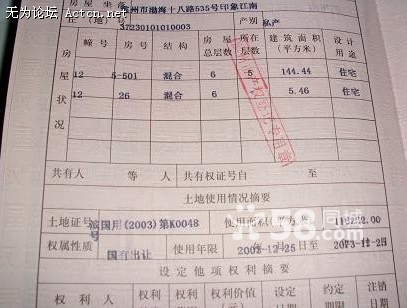 无为论坛 Actcn.net
房屋坐落
滨州市渤海十八路535号印象江南
丘(地)号
37230101010003
产别
私产
房屋状况
幢号 房号 结构 房屋总层数 所在层数 建筑面积(平方米) 设计用途
12 5-501 混合 6 5 144.44 住宅
12 26 混合 6 5.46 住宅
共有人 等 人 共有权证号自 至
土地使用情况摘要
土地证号 滨国用(2003)第K0048号 使用面积(平方米)
权属性质 国有出让 使用年限 年 月 日至 年 月 日
设定他项权利摘要
权利人 权利 权利 权利价值(元) 设定 约定 注销
日期 期限 日期
58同城